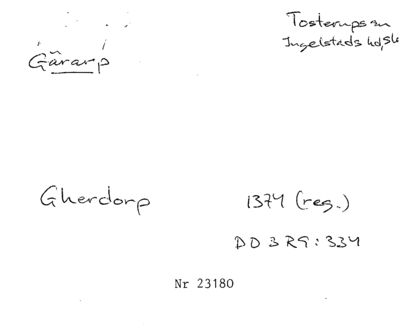 Tosterups sn
Gärarp
Ingelstads hd, Sk
Gherdorp
1374 (reg.)
DD 3 R9:334
Nr 23180